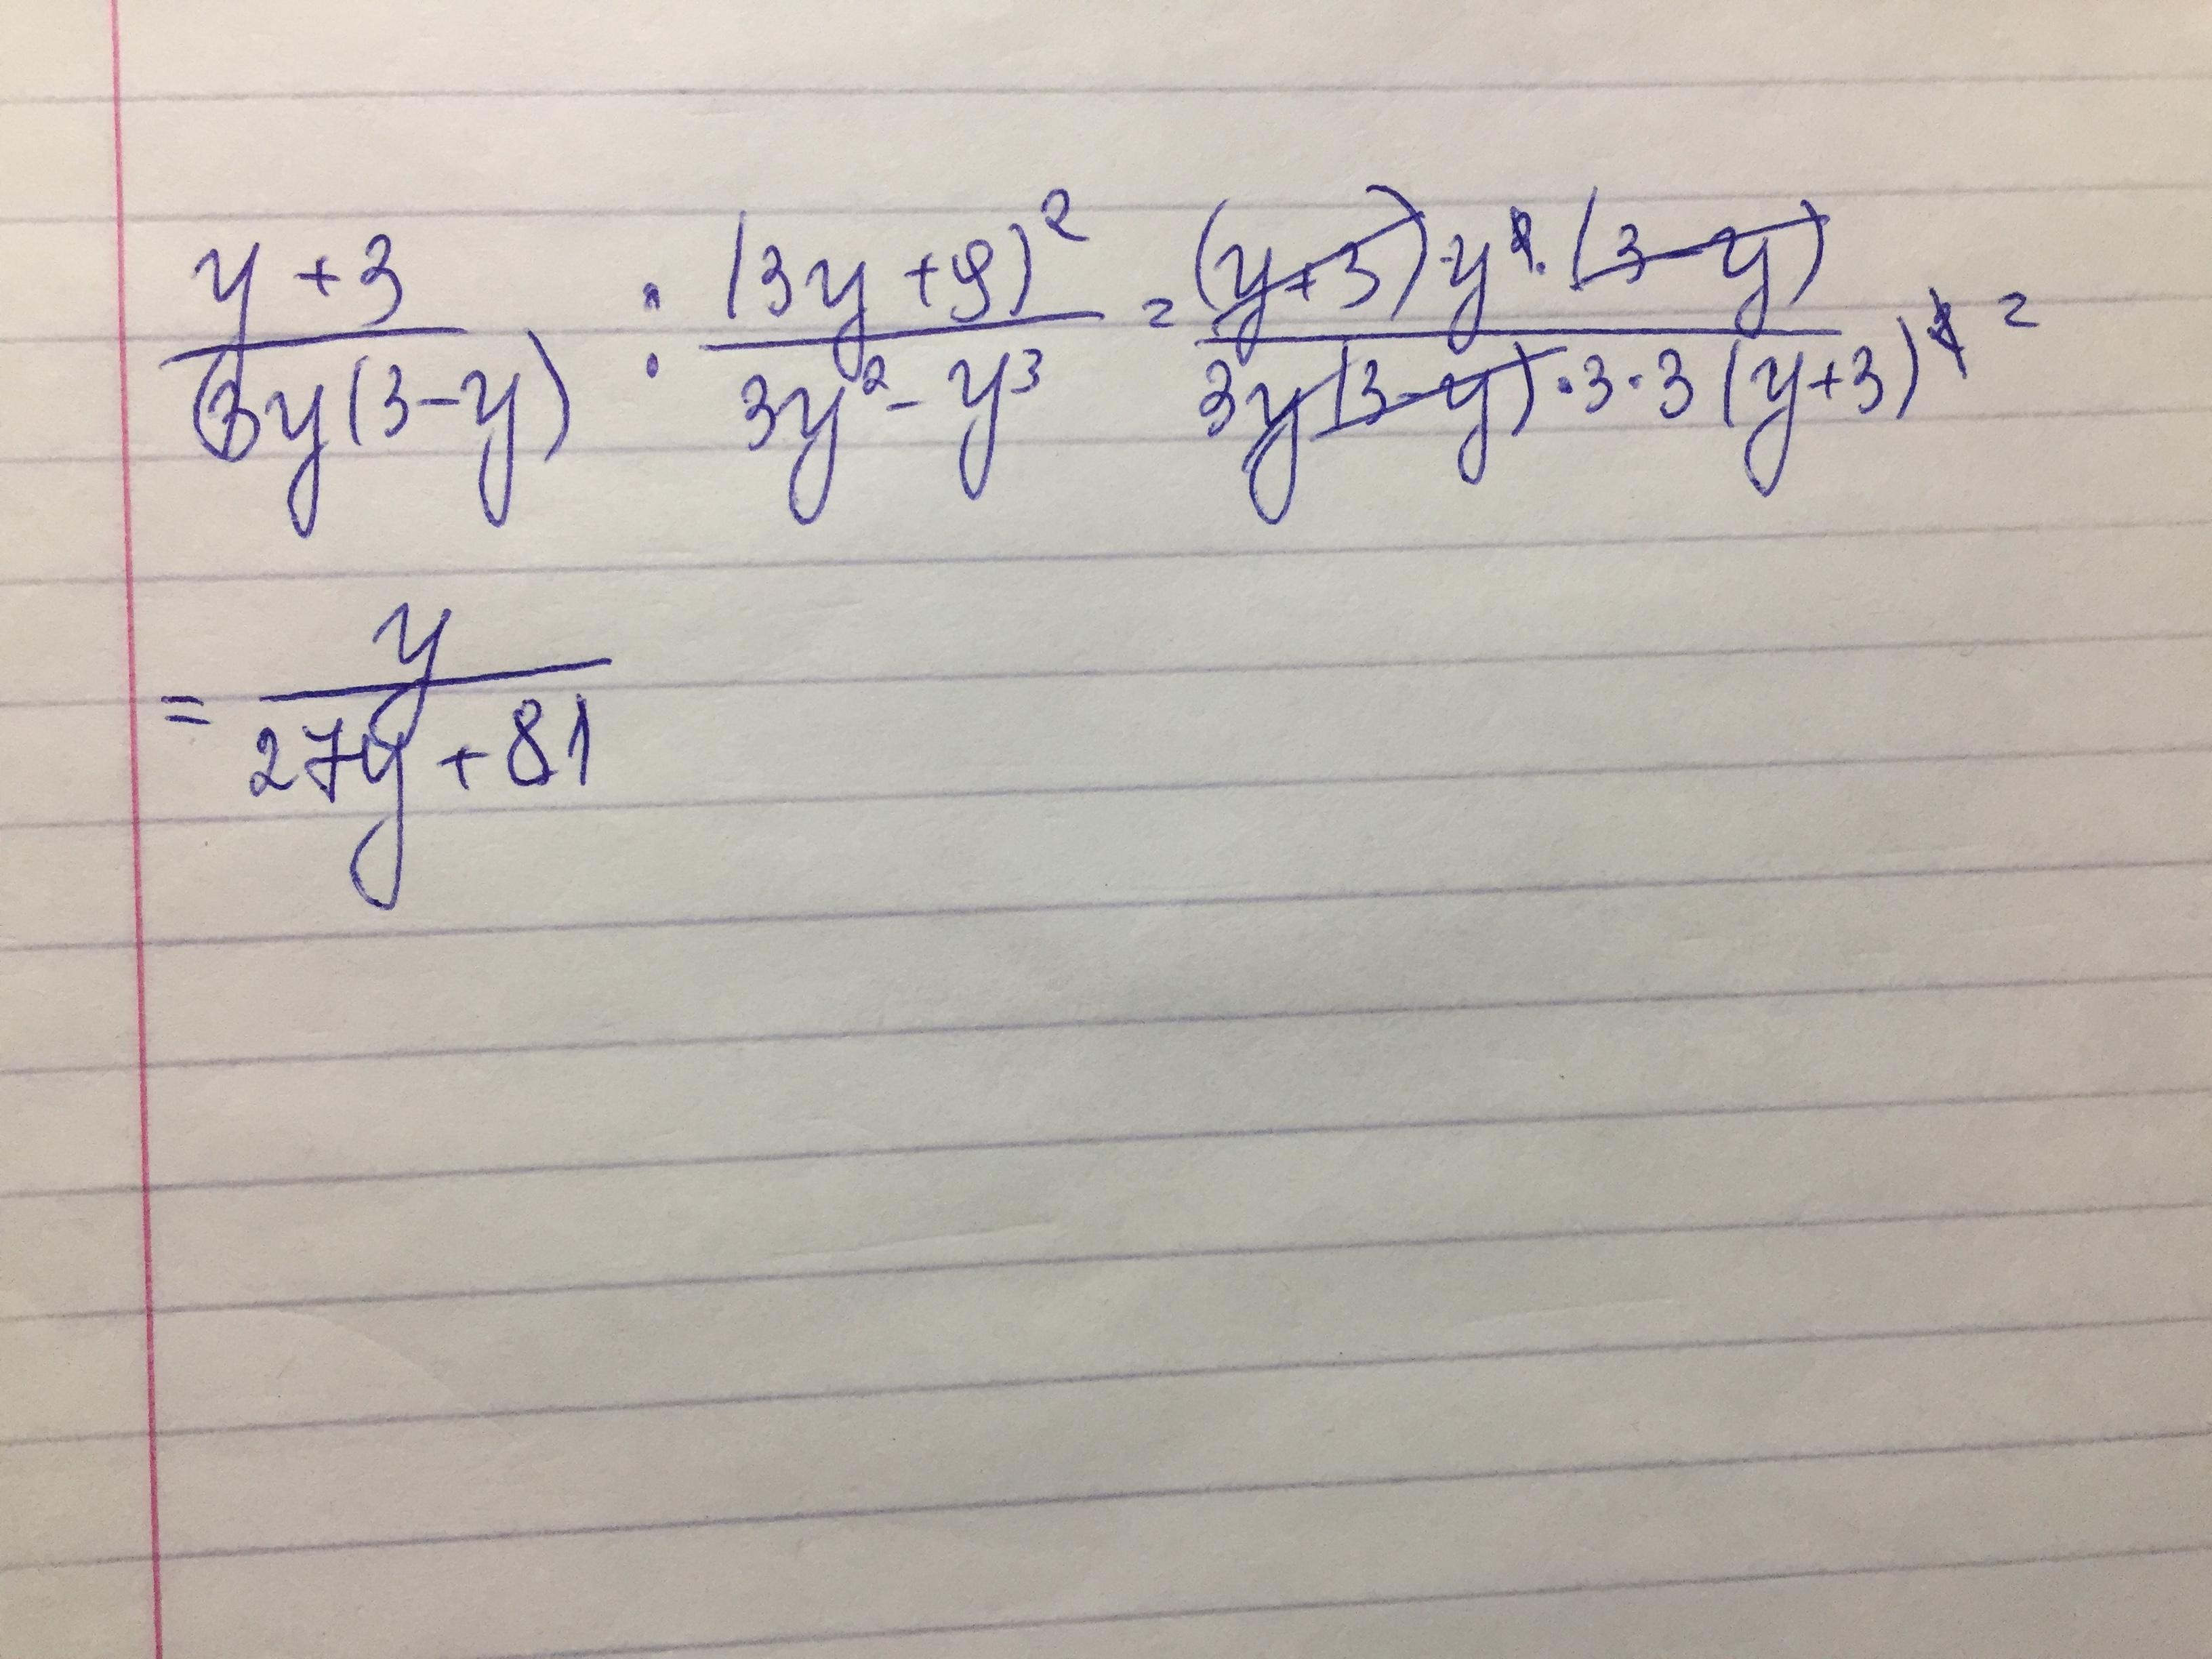 (y+3)/(3y(3-y)) : (3y+9)²/(3y²-y³) = ((y+3)·y²·(3-y))/(3y(3-y)·3·3(y+3)²) =
= y/(27y+81)